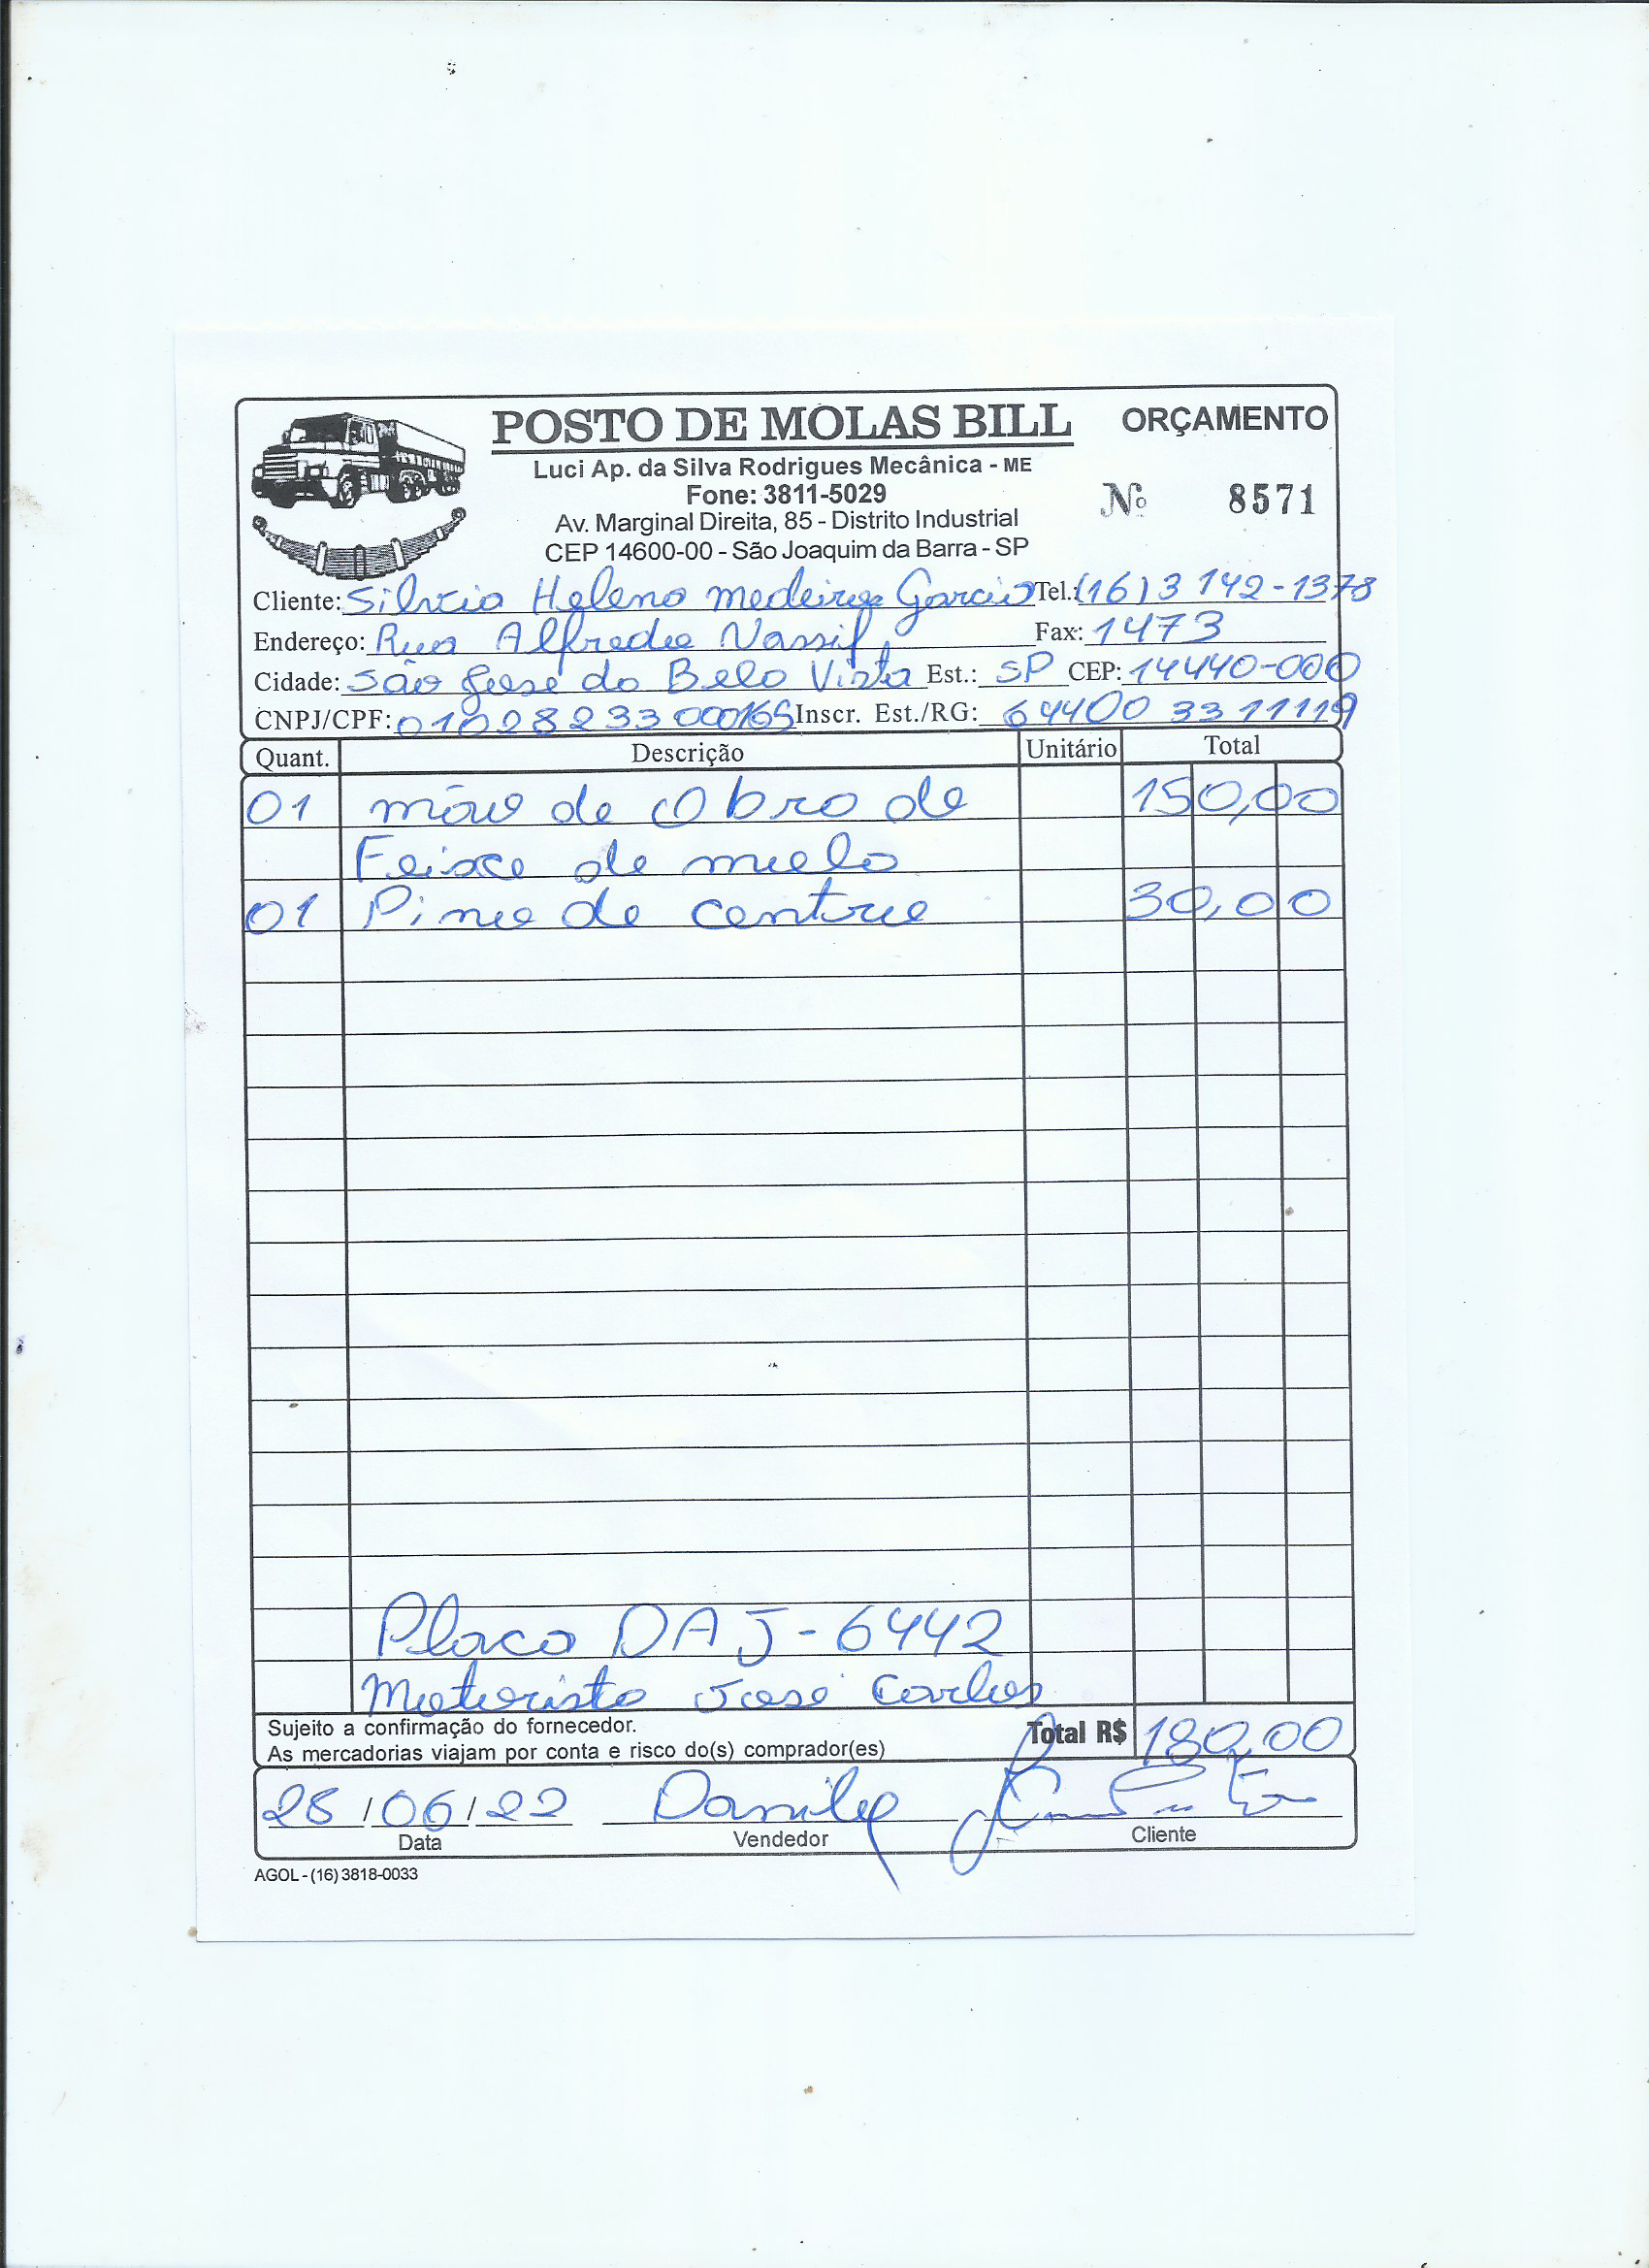 POSTO DE MOLAS BILL ORÇAMENTO
Luci Ap. da Silva Rodrigues Mecânica - ME
Fone: 3811-5029
Nº 8571
Av. Marginal Direita, 85 - Distrito Industrial
CEP 14600-00 - São Joaquim da Barra - SP
Cliente: Silvia Helena Medeiros Garcia Tel.: (16) 3142-1378
Endereço: Rua Alfredo Nassif, Fax: 1473
Cidade: São José da Bela Vista Est.: SP CEP: 14440-000
CNPJ/CPF: 01028233000165 Inscr. Est./RG: 644003311119
Quant. Descrição Unitário Total
01 mão de Obra de 150,00
Feixe de mola
01 Pino de centro 30,00
Placa DAJ-6442
Motorista José Carlos
Sujeito a confirmação do fornecedor. Total R$ 180,00
As mercadorias viajam por conta e risco do(s) comprador(es)
28/06/22 Danilo
Data Vendedor Cliente
AGOL - (16) 3818-0033